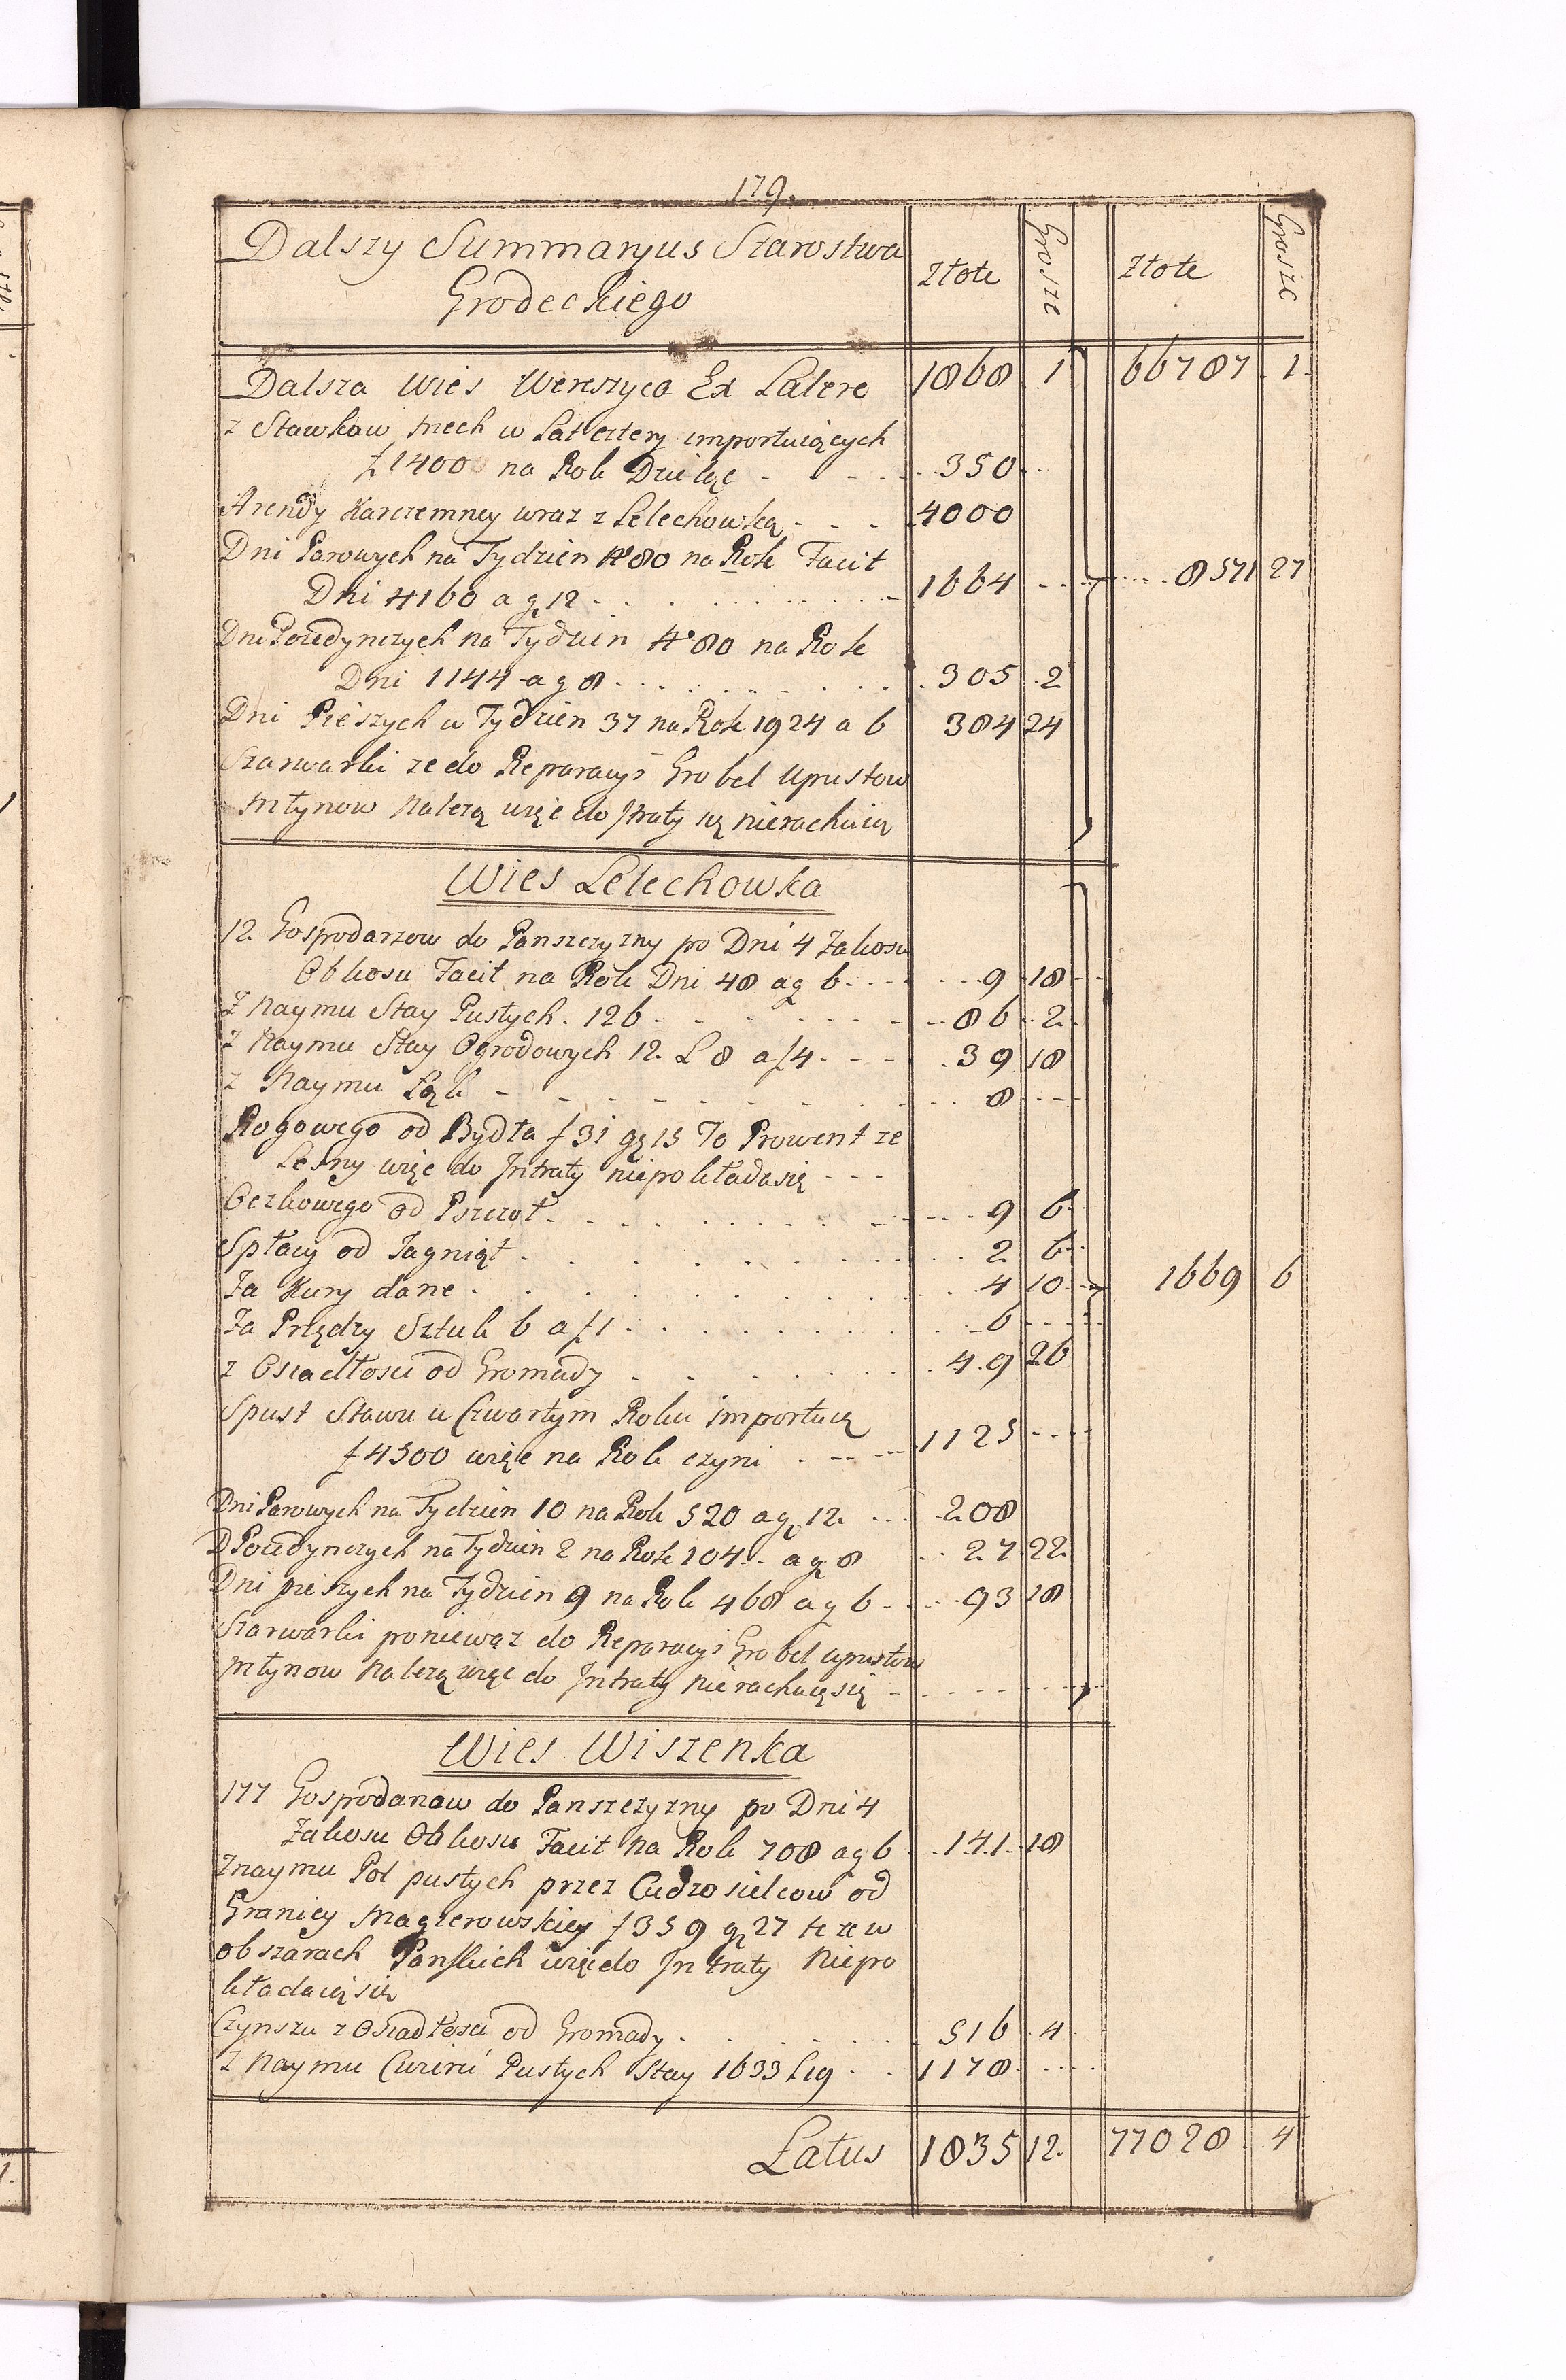 179.
Dalszy Summaryus Starostwa
Grodeckiego
Złote Grosze Złote Grosze
Dalsza Wies Wereszyca Ex Latere 1868 1 66787 1.
z Stawkow trzech w Lat cztery importuiących
f 1400 na Rok Dzieląc - - - 350
Arendy Karczemney wraz z Lelechowką - - - 4000
Dni Parowych na Tydzien N° 80 na Rok Facit
Dni 4160 a g 12 - - - 1664 - - - 8571 27
Dni Poiedynczych na Tydzien N° 80 na Rok
Dni 1144 a g 8 - - - 305 2
Dni Pieszych w Tydzien 37 na Rok 1924 a 6 384 24
Szarwarki ze do Reparacyi Grobel Upustow
Młynow należą więc do Jntraty się nierachuią
Wies Lelechowka
12. Gospodarzow do Panszczyzny po Dni 4 Zakosu
Obkosu Facit na Rok Dni 48 a g 6 - - - 9 18
Z Naymu Stay Pustych. 126 - - - 86 2
Z Naymu Stay Ogrodowych 12. L 8 a f 4 - - - 39 18
z Naymu Łąk - - - 8
Rogowego od Bydła f 31 g 15 To Prowent ze
Lesny więc do Jntraty niepokłada się - - -
Oczkowego od Pszczoł - - - 9 6
Spłacy od Jagniąt - - - 2 6
Za Kury dane - - - 4 10 1669 6
Za Przędzy Sztuk 6 a f 1 - - - 6
z Osiadłosci od Gromady - - - 49 26
Spust Stawu w Czwartym Roku importuią
f 4500 więc na Rok czyni - - - 1125
Dni Parowych na Tydzien 10 na Rok 520 a g 12. - - - 208
D Poiedynczych na Tydzien 2 na Rok 104 - a g 8 - - 27 22
Dni pieszych na Tydzien 9 na Rok 468 a g 6 - - - 93 18
Szarwarki poniewaz do Reparacyi Grobel upustow
Młynow należą więc do Jntraty nie rachuią się - - -
Wies Wiszenka
177 Gospodarzow do Panszczyzny po Dni 4
Zakosu Obkosu Facit na Rok 708 a g 6 141 18
Z naymu Pol pustych przez Cudzosielcow od
Granicy Magierowskiey f 359 g 27 te ze w
obszarach Panskich więc do Jntraty niepo
kładaią się
Czynszu z Osiadłosci od Gromady - - - 516 4
Z Naymu Cwierci Pustych Stay 1633 L 19 - - 1178
Latus 1835 12. 77028 4